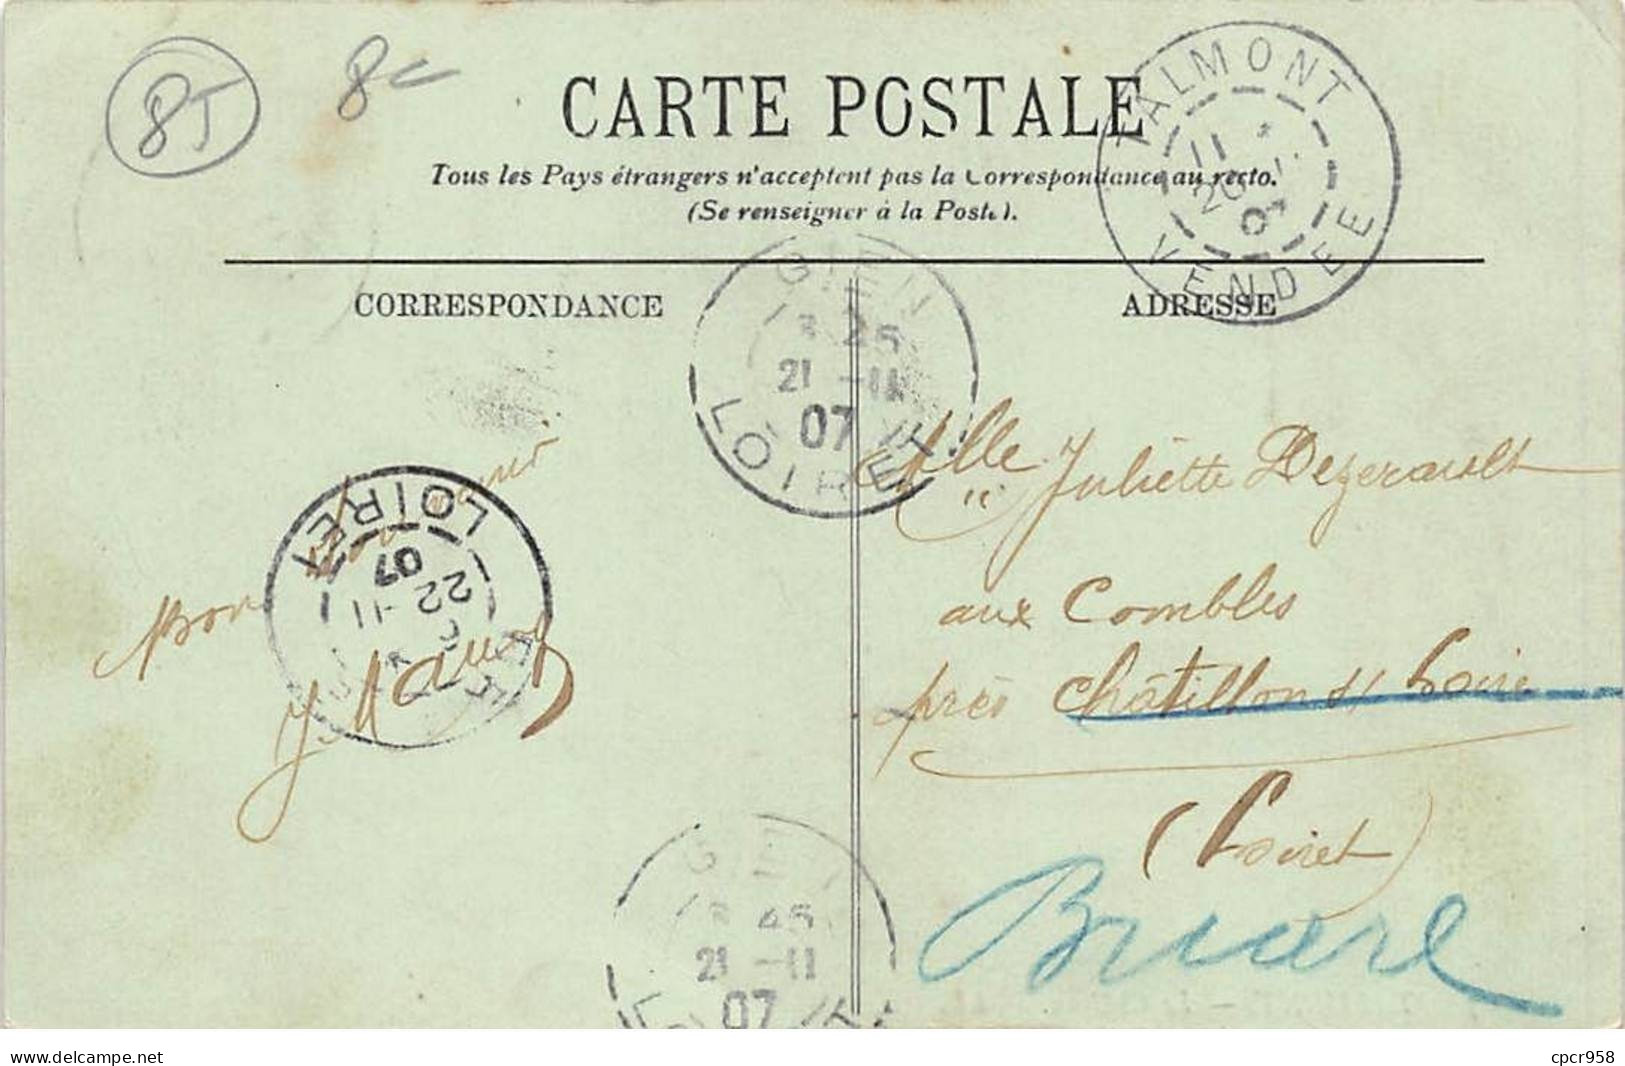 8J
8c
CARTE POSTALE
Tous les Pays étrangers n'acceptent pas la Correspondance au recto.
(Se renseigner à la Poste).
TALMONT
11 *
20
07
VENDEE
CORRESPONDANCE
ADRESSE
GIEN
3 25
21 -11
07
LOIRET
Bon souvenir
J Mauny
LOIRET
22 -11
07
Mlle Juliette Dezerault
aux Combles
près Châtillon s/ Loire
(Loiret)
Briare
GIEN
3 45
21 -11
07
www.delcampe.net
cpcr958